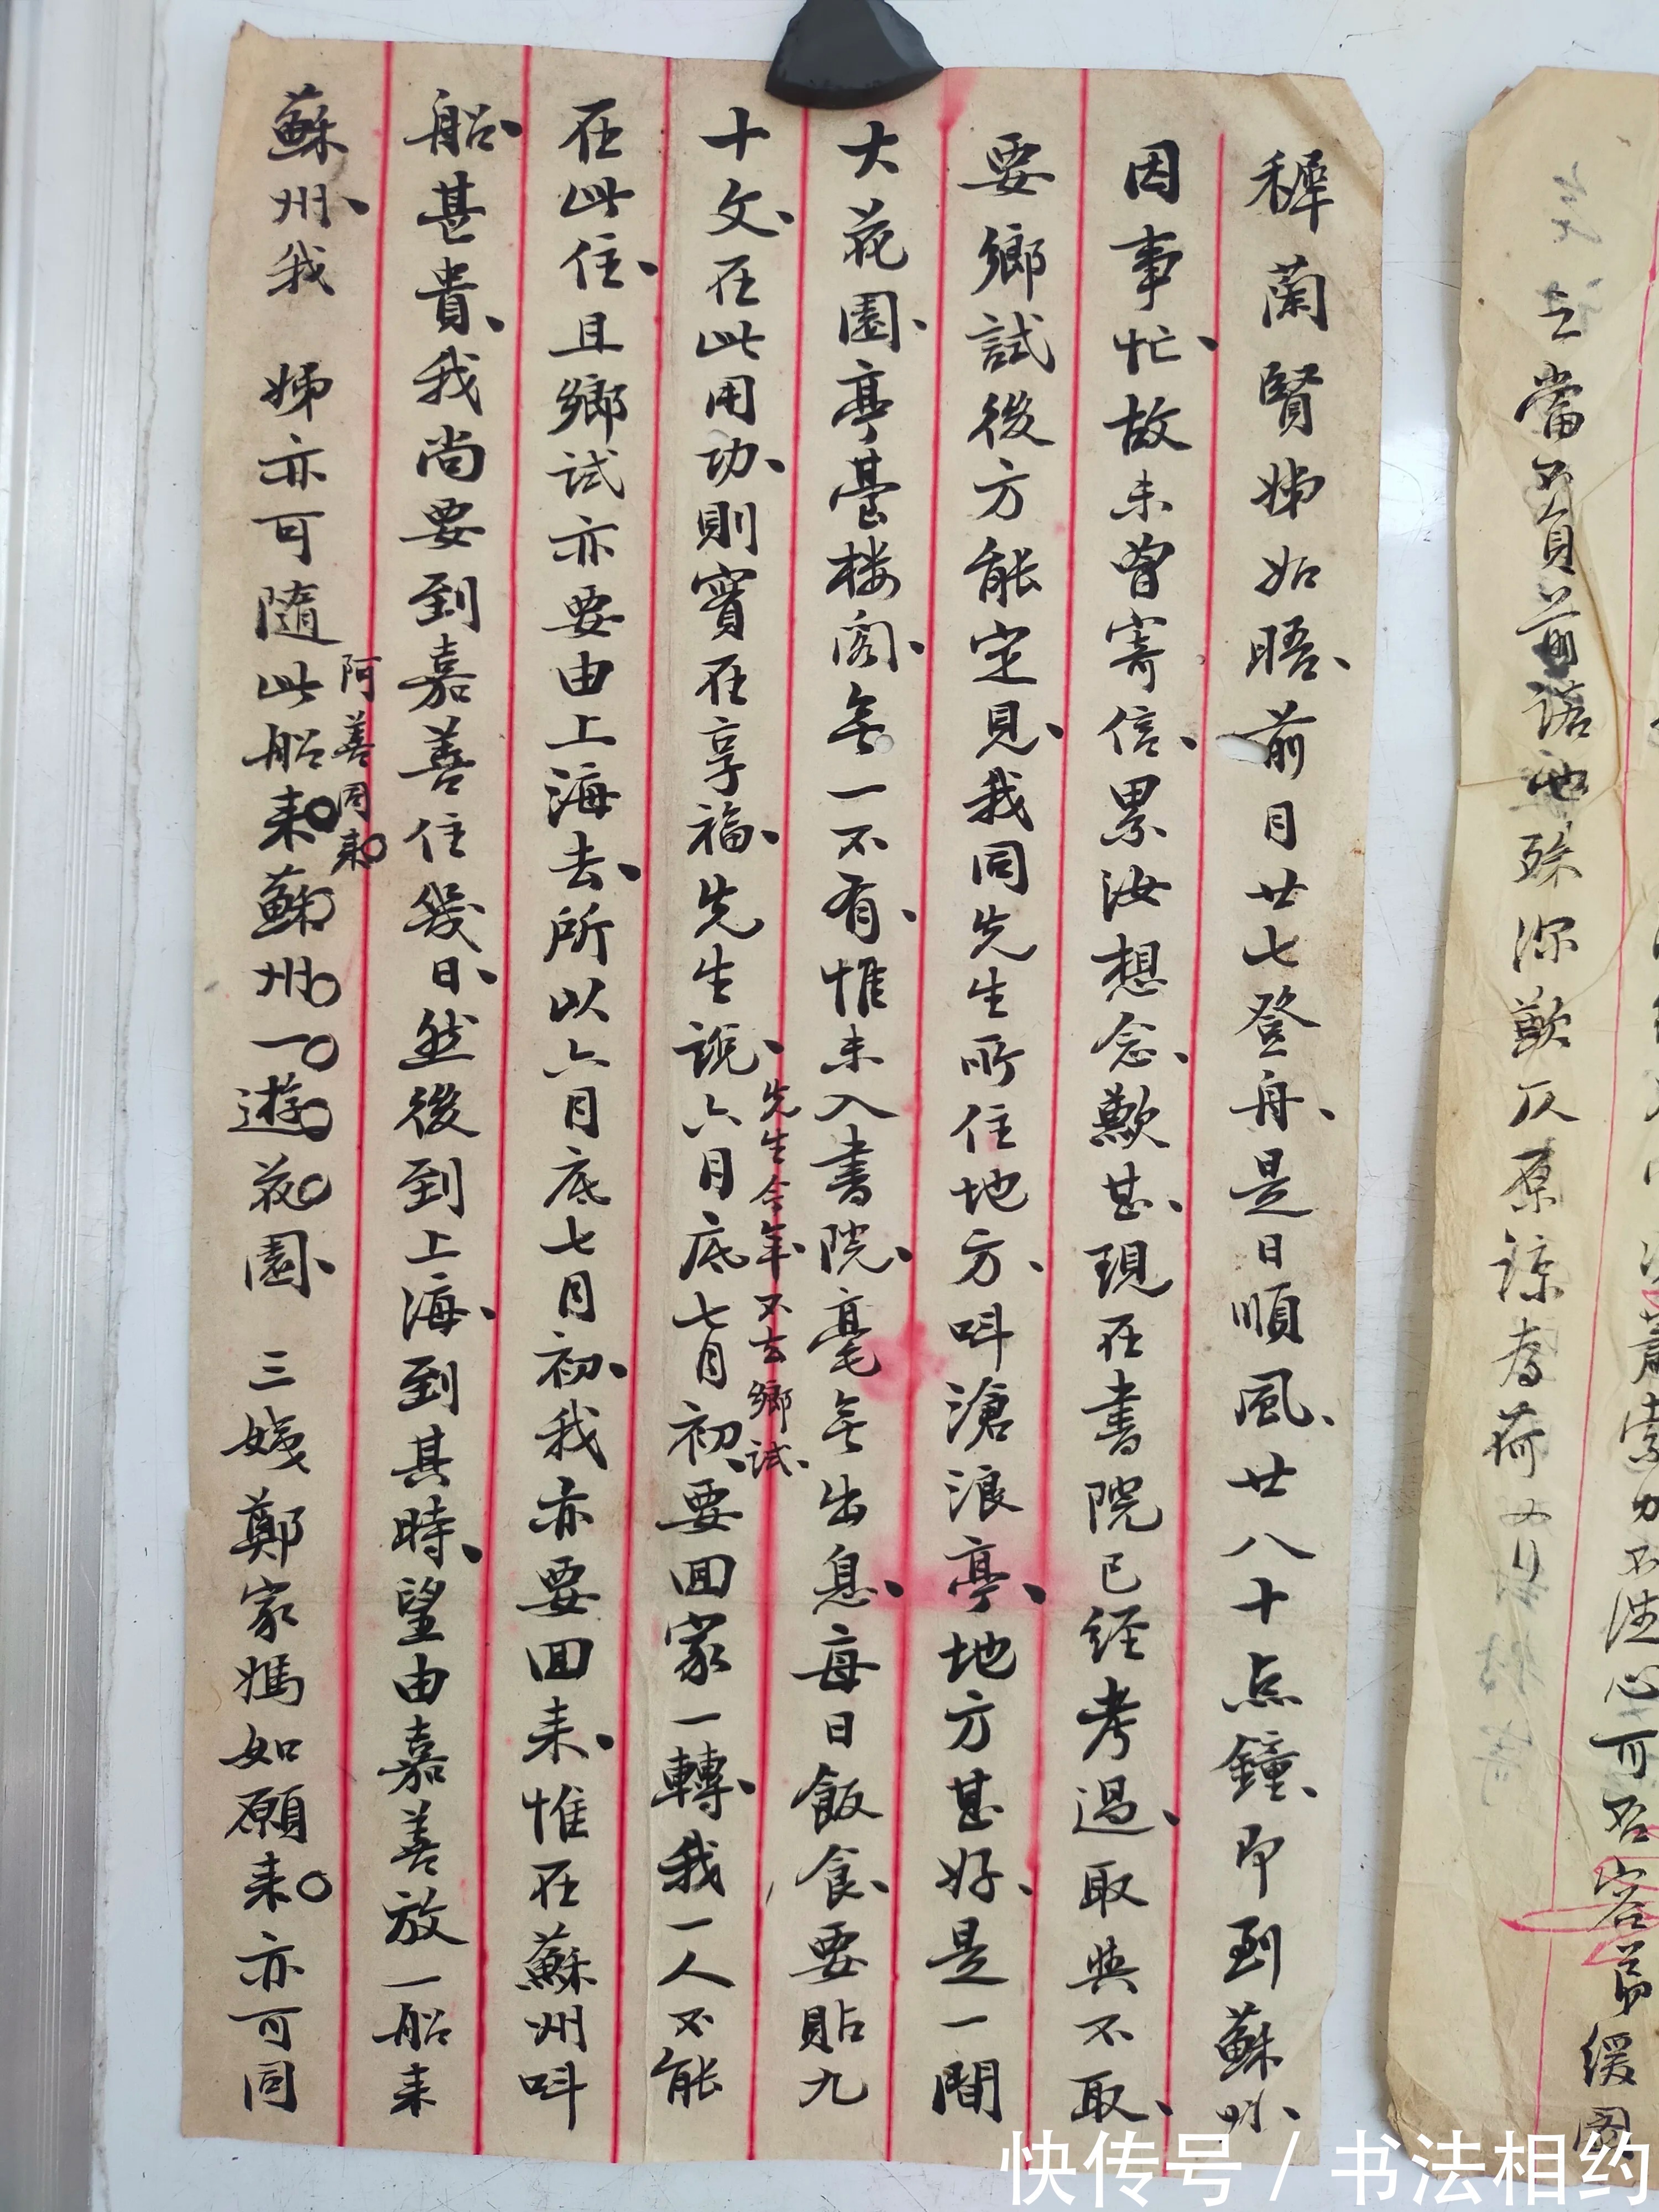 穉蘭賢姊如晤、前月廿七登舟、是日順風、廿八十点鐘、即到蘇州、
因事忙、故未曾寄信、累汝想念、歉甚、現在書院已經考過、取與不取、
要鄉試後方能定見、我同先生所住地方、叫滄浪亭、地方甚好、是一間
大花園、亭臺楼阁、無一不有、惟未入書院、毫無出息、每日飯食、要貼九
十文、在此用功、則實在享福、先生說、六月底七月初、要回家一轉、我一人不能
先生今年不去鄉試、
在此住、且鄉試亦要由上海去、所以六月底七月初、我亦要回来、惟在蘇州叫
船甚貴、我尚要到嘉善住幾日、然後到上海、到其時、望由嘉善放一船来
蘇州、我 姊亦可隨此船来蘇州一遊花園、 三姨鄭家媽如願来亦可同
阿善同来
之當負前諾也殊深歉仄原諒為荷
不注心可否容弟缓圖
快传号/书法相约